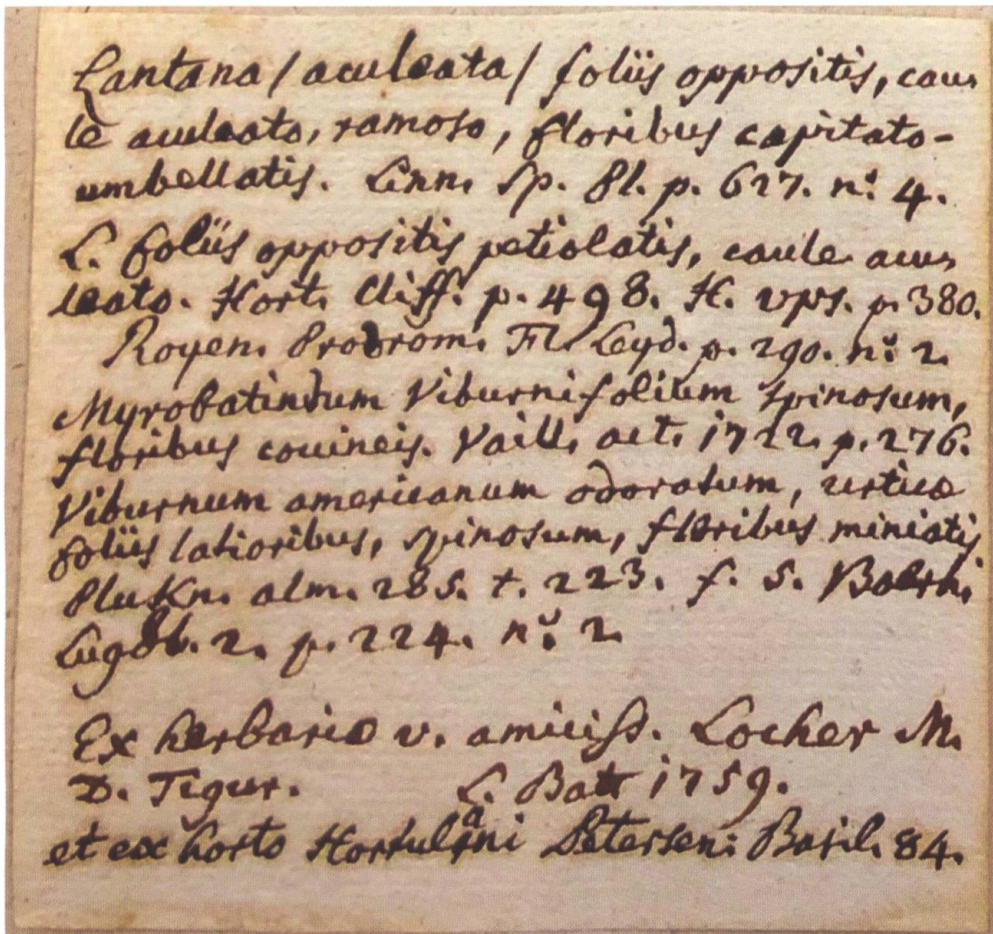 Lantana / aculeata / foliis oppositis, cau-
le aculeato, ramoso, floribus capitato-
umbellatis. Linn. Sp. Pl. p. 627. n.° 4.
L. foliis oppositis petiolatis, caule acu-
leato. Hort. Cliff. p. 498. H. Ups. p. 380.
Royen. Prodrom. Fl. Leyd. p. 290. n.° 2.
Myrobatindum Viburnifolium spinosum,
floribus coccineis. Vaill. act. 1722. p. 276.
Viburnum americanum odoratum, urticæ
foliis latioribus, spinosum, floribus miniatis
Plukn. alm. 285. t. 223. f. 5. Boerh.
Lugdb. 2. p. 224. n.° 2.
Ex herbario v. amiciss. Locher M.
D. Tigur. 1759.
et ex horto Hortulani Petersen: Basil. 84.